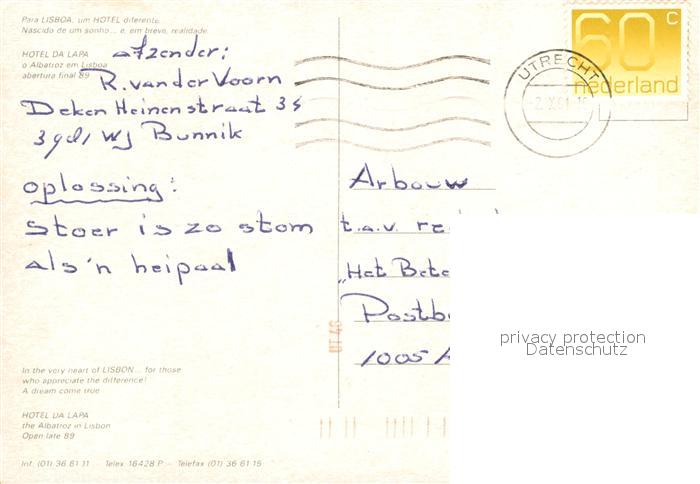 Para LISBOA, um HOTEL diferente.
Nascido de um sonho... e, em breve, realidade.
HOTEL DA LAPA
o Albatroz em Lisboa
abertura final 89
afzender:
R. van der Voorn
Deken Heinenstraat 34
WJ Bunnik
oplossing:
stoer is zo stom
als 'n heipaal
60 c
nederland
UTRECHT
Arbouw
t.a.v. re
"Het Bete
Postb
1005 A
privacy protection
Datenschutz
In the very heart of LISBON... for those
who appreciate the difference!
A dream come true
HOTEL DA LAPA
the Albatroz in Lisbon
Open late 89
Inf. (01) 36 61 11 - Telex 16428 P - Telefax (01) 36 61 15